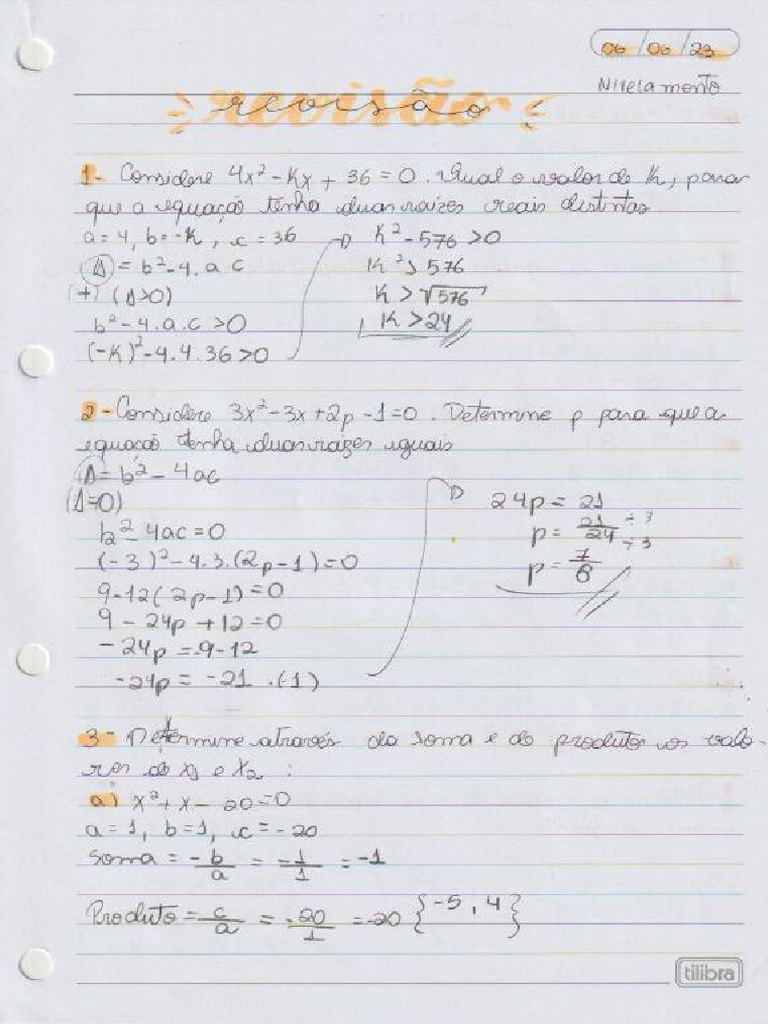 06/06/23
Nivelamento
revisão
1- Considere 4x² - Kx + 36 = 0. Qual o valor de K, para
que a equação tenha duas raízes reais distintas
a = 4, b = -K, c = 36
Δ = b² - 4.a c
(+) (Δ>0)
b² - 4.a.c > 0
(-K)² - 4.4.36 > 0
K² - 576 > 0
K² > 576
K > √576
K > 24
2- Considere 3x² - 3x + 2p - 1 = 0. Determine p para que a
equação tenha duas raízes iguais
Δ = b² - 4ac
(Δ=0)
b² - 4ac = 0
(-3)² - 4.3.(2p - 1) = 0
9 - 12(2p - 1) = 0
9 - 24p + 12 = 0
-24p = -9 - 12
-24p = -21 .(1)
24p = 21
p = 21/24 ÷3 ÷3
p = 7/8
3- Determine através da soma e do produto os valo-
res de x1 e x2 :
a) x² + x - 20 = 0
a = 1, b = 1, c = -20
Soma = -b/a = -1/1 = -1
Produto = c/a = -20/1 = -20 {-5, 4}
tilibra